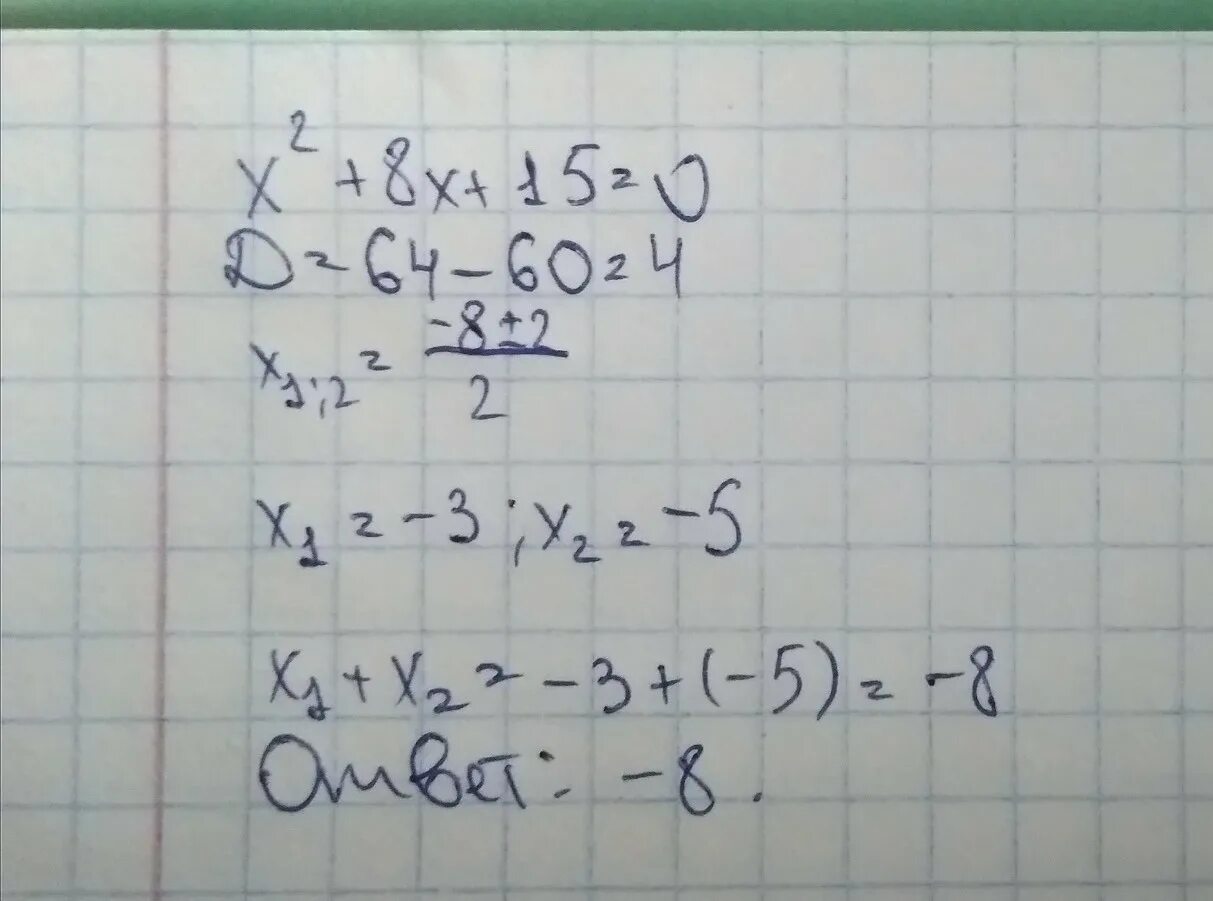 x² + 8x + 15 = 0
D = 64 - 60 = 4
x₁;₂ = (-8 ± 2)/2
x₁ = -3 ; x₂ = -5
x₁ + x₂ = -3 + (-5) = -8
Ответ: -8.